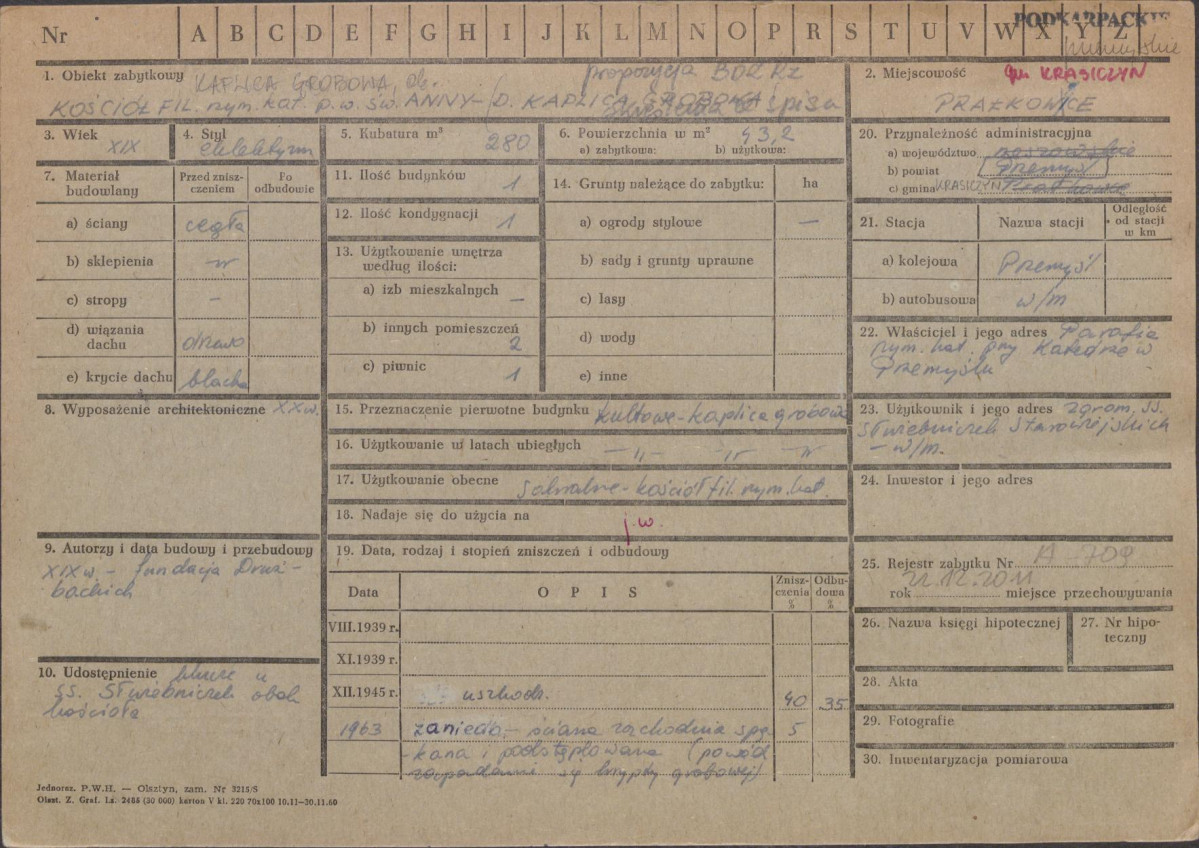 Nr A B C D E F G H I J K L M N O P R S T U V W X Y Z
PODKARPACKIE
przemyskie
1. Obiekt zabytkowy KAPLICA GROBOWA, ob.
propozycja BDZ Rz
KOŚCIÓŁ FIL. rzym. kat. p.w. św. ANNY - (D. KAPLICA GROBOWA)
2. Miejscowość gm KRASICZYN
PRAŁKOWCE
3. Wiek XIX
4. Styl eklektyzm
5. Kubatura m³ 280
6. Powierzchnia w m² 43,2
a) zabytkowa: b) użytkowa:
7. Materiał budowlany
Przed zniszczeniem
Po odbudowie
a) ściany cegła
b) sklepienia -"-
c) stropy -
d) wiązania dachu drewno
e) krycie dachu blacha
8. Wyposażenie architektoniczne XX w.
9. Autorzy i data budowy i przebudowy
XIX w. - fundacja Druż-
backich
10. Udostępnienie klucze u
SS. Służebniczek obok
kościoła
11. Ilość budynków 1
12. Ilość kondygnacji 1
13. Użytkowanie wnętrza według ilości:
a) izb mieszkalnych -
b) innych pomieszczeń 2
c) piwnic 1
14. Grunty należące do zabytku: ha
a) ogrody stylowe -
b) sady i grunty uprawne
c) lasy
d) wody
e) inne
15. Przeznaczenie pierwotne budynku kultowe - kaplica grobowa
16. Użytkowanie w latach ubiegłych -"- -"- -"-
17. Użytkowanie obecne sakralne - kościół fil. rzym. kat.
18. Nadaje się do użycia na j.w.
19. Data, rodzaj i stopień zniszczeń i odbudowy
Data OPIS Zniszczenia % Odbudowa %
VIII.1939 r.
XI.1939 r.
XII.1945 r. uszkodz. 40 35
1963 zaniedb. - ściana zachodnia spę 5
-kana i podstęplowana (powód
zapadanie się krypty grobowej)
20. Przynależność administracyjna
a) województwo rzeszowskie
b) powiat Przemyśl
c) gmina KRASICZYN Prałkowce
21. Stacja Nazwa stacji Odległość od stacji w km
a) kolejowa Przemyśl
b) autobusowa w/m
22. Właściciel i jego adres Parafia
rzym. kat. przy Katedrze w
Przemyślu
23. Użytkownik i jego adres zgrom. SS.
Służebniczek Starowiejskich
- w/m.
24. Inwestor i jego adres
25. Rejestr zabytku Nr A-709
rok 22.12.2011 miejsce przechowywania
26. Nazwa księgi hipotecznej
27. Nr hipoteczny
28. Akta
29. Fotografie
30. Inwentaryzacja pomiarowa
Jednoraz. P.W.H. — Olsztyn, zam. Nr 3215/S
Olszt. Z. Graf. Lz. 2485 (30 000) karton V kl. 220 70x100 10.11—30.11.60